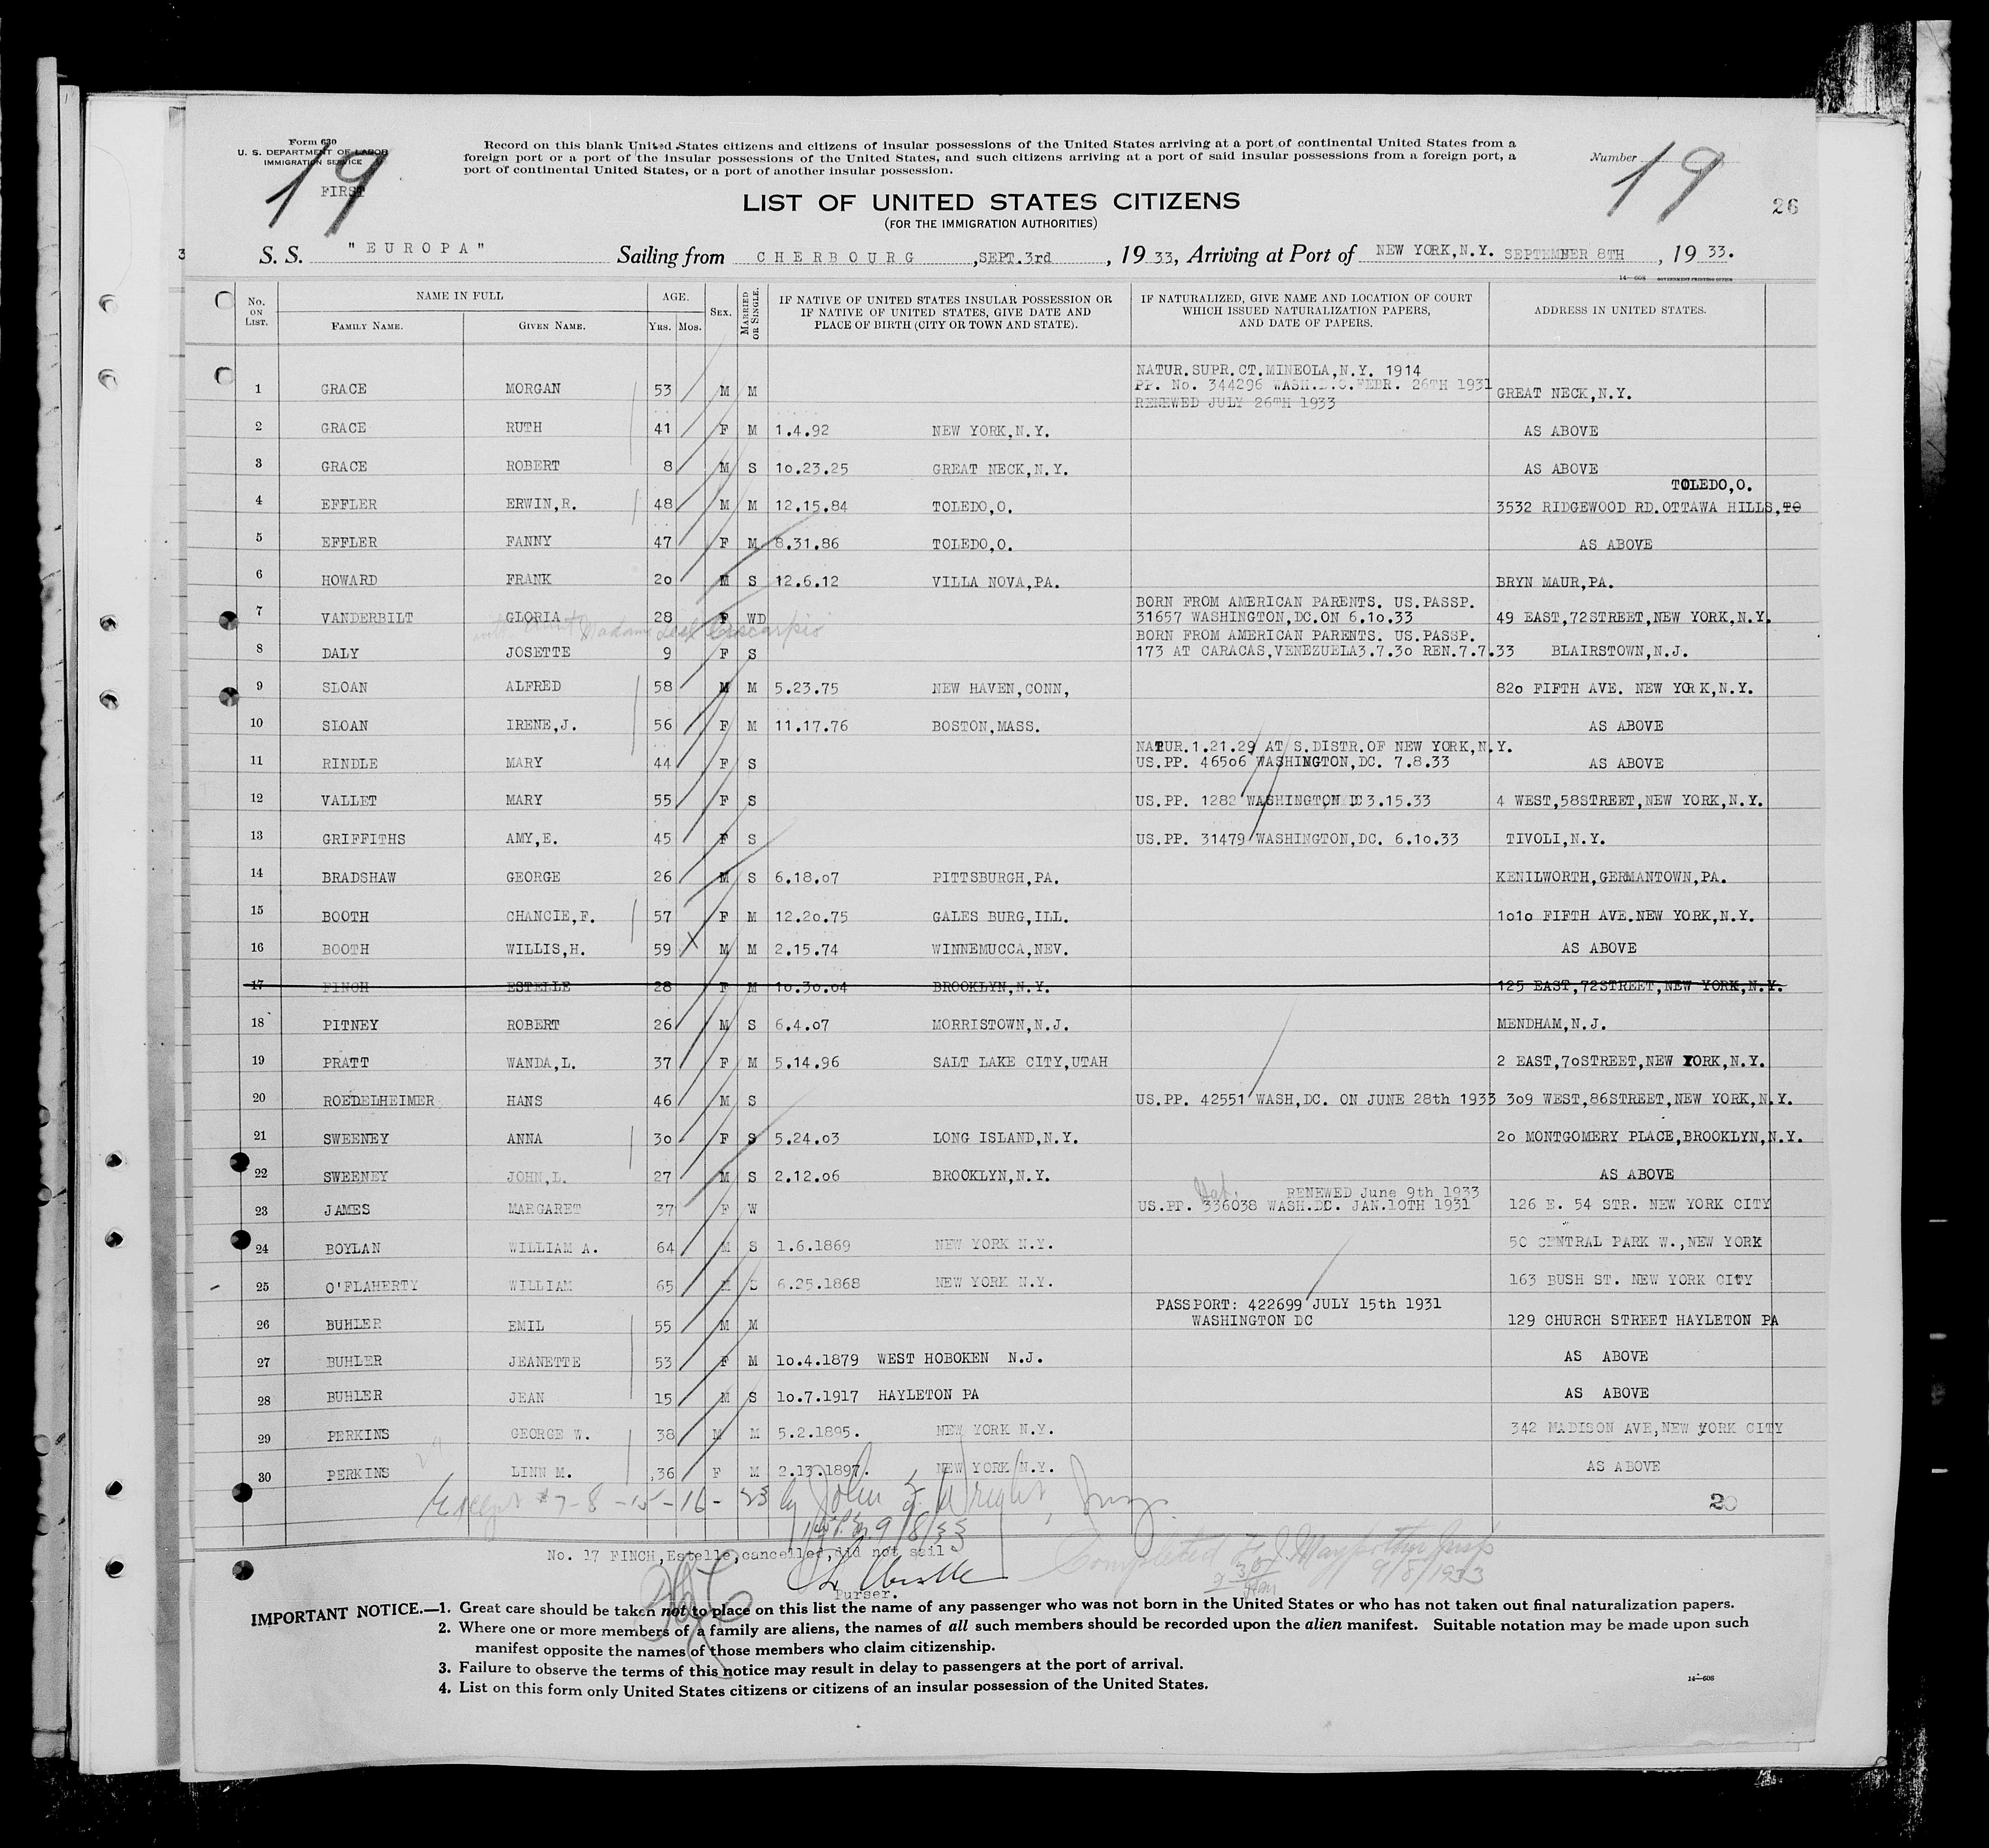 Form 630
U. S. DEPARTMENT OF LABOR
IMMIGRATION SERVICE
FIRST
19
Record on this blank United States citizens and citizens of insular possessions of the United States arriving at a port of continental United States from a
foreign port or a port of the insular possessions of the United States, and such citizens arriving at a port of said insular possessions from a foreign port, a
port of continental United States, or a port of another insular possession.
Number
19
26
LIST OF UNITED STATES CITIZENS
(FOR THE IMMIGRATION AUTHORITIES)
3
S. S. "EUROPA" Sailing from CHERBOURG ,SEPT.3rd , 19 33, Arriving at Port of NEW YORK,N.Y. SEPTEMNER 8TH , 19 33.
14—608 GOVERNMENT PRINTING OFFICE
No. ON LIST. NAME IN FULL AGE. SEX. MARRIED OR SINGLE. IF NATIVE OF UNITED STATES INSULAR POSSESSION OR IF NATIVE OF UNITED STATES, GIVE DATE AND PLACE OF BIRTH (CITY OR TOWN AND STATE). IF NATURALIZED, GIVE NAME AND LOCATION OF COURT WHICH ISSUED NATURALIZATION PAPERS, AND DATE OF PAPERS. ADDRESS IN UNITED STATES.
FAMILY NAME. GIVEN NAME. YRS. MOS.
NATUR.SUPR.CT.MINEOLA,N.Y. 1914
1 GRACE MORGAN 53 M M PP. No. 344296 WASH.D.C.FEBR. 26TH 1931 GREAT NECK,N.Y.
RENEWED JULY 26TH 1933
2 GRACE RUTH 41 F M 1.4.92 NEW YORK,N.Y. AS ABOVE
3 GRACE ROBERT 8 M S 10.23.25 GREAT NECK,N.Y. AS ABOVE
TOLEDO,O.
4 EFFLER ERWIN,R. 48 M M 12.15.84 TOLEDO,O. 3532 RIDGEWOOD RD.OTTAWA HILLS,TO
5 EFFLER FANNY 47 F M 8.31.86 TOLEDO,O. AS ABOVE
6 HOWARD FRANK 20 M S 12.6.12 VILLA NOVA,PA. BRYN MAUR,PA.
BORN FROM AMERICAN PARENTS. US.PASSP.
7 VANDERBILT GLORIA 28 F WD 31657 WASHINGTON,DC.ON 6.10.33 49 EAST,72STREET,NEW YORK,N.Y.
with Aunt Madam
BORN FROM AMERICAN PARENTS. US.PASSP.
8 DALY JOSETTE 9 F S 173 AT CARACAS,VENEZUELA3.7.30 REN.7.7.33 BLAIRSTOWN,N.J.
9 SLOAN ALFRED 58 M M 5.23.75 NEW HAVEN,CONN, 820 FIFTH AVE. NEW YORK,N.Y.
10 SLOAN IRENE,J. 56 F M 11.17.76 BOSTON,MASS. AS ABOVE
NATUR.1.21.29 AT S.DISTR.OF NEW YORK,N.Y.
11 RINDLE MARY 44 F S US.PP. 46506 WASHINGTON,DC. 7.8.33 AS ABOVE
12 VALLET MARY 55 F S US.PP. 1282 WASHINGTON DC 3.15.33 4 WEST,58STREET,NEW YORK,N.Y.
13 GRIFFITHS AMY,E. 45 F S US.PP. 31479 WASHINGTON,DC. 6.10.33 TIVOLI,N.Y.
14 BRADSHAW GEORGE 26 M S 6.18.07 PITTSBURGH,PA. KENILWORTH,GERMANTOWN,PA.
15 BOOTH CHANCIE,F. 57 F M 12.20.75 GALES BURG,ILL. 1010 FIFTH AVE.NEW YORK,N.Y.
16 BOOTH WILLIS,H. 59 X M M 2.15.74 WINNEMUCCA,NEV. AS ABOVE
17 FINCH ESTELLE 28 F M 10.30.04 BROOKLYN,N.Y. 125 EAST,72STREET,NEW YORK,N.Y.
18 PITNEY ROBERT 26 M S 6.4.07 MORRISTOWN,N.J. MENDHAM,N.J.
19 PRATT WANDA,L. 37 F M 5.14.96 SALT LAKE CITY,UTAH 2 EAST,70STREET,NEW YORK,N.Y.
20 ROEDELHEIMER HANS 46 M S US.PP. 42551 WASH,DC. ON JUNE 28th 1933 309 WEST,86STREET,NEW YORK,N.Y.
21 SWEENEY ANNA 30 F S 5.24.03 LONG ISLAND,N.Y. 20 MONTGOMERY PLACE,BROOKLYN,N.Y.
22 SWEENEY JOHN,L. 27 M S 2.12.06 BROOKLYN,N.Y. AS ABOVE
RENEWED June 9th 1933
23 JAMES MARGARET 37 F W US.PP. 336038 WASH.DC. JAN.10TH 1931 126 E. 54 STR. NEW YORK CITY
24 BOYLAN WILLIAM A. 64 M S 1.6.1869 NEW YORK N.Y. 50 CENTRAL PARK W.,NEW YORK
25 O'FLAHERTY WILLIAM 65 M S 6.25.1868 NEW YORK N.Y. 163 BUSH ST. NEW YORK CITY
PASSPORT: 422699 JULY 15th 1931
26 BUHLER EMIL 55 M M WASHINGTON DC 129 CHURCH STREET HAYLETON PA
27 BUHLER JEANETTE 53 F M 10.4.1879 WEST HOBOKEN N.J. AS ABOVE
28 BUHLER JEAN 15 M S 10.7.1917 HAYLETON PA AS ABOVE
29 PERKINS GEORGE W. 38 M M 5.2.1895. NEW YORK N.Y. 342 MADISON AVE,NEW YORK CITY
30 PERKINS LINN M. 36 F M 2.13.1897. NEW YORK N.Y. AS ABOVE
Except #7-8-15-16-23 by John Wright,
20
9/8/33
No. 17 FINCH,Estelle,cancelled,did not sail
Completed
9/8/1933
Purser.
IMPORTANT NOTICE.—1. Great care should be taken not to place on this list the name of any passenger who was not born in the United States or who has not taken out final naturalization papers.
2. Where one or more members of a family are aliens, the names of all such members should be recorded upon the alien manifest. Suitable notation may be made upon such
manifest opposite the names of those members who claim citizenship.
3. Failure to observe the terms of this notice may result in delay to passengers at the port of arrival.
4. List on this form only United States citizens or citizens of an insular possession of the United States.
14—608